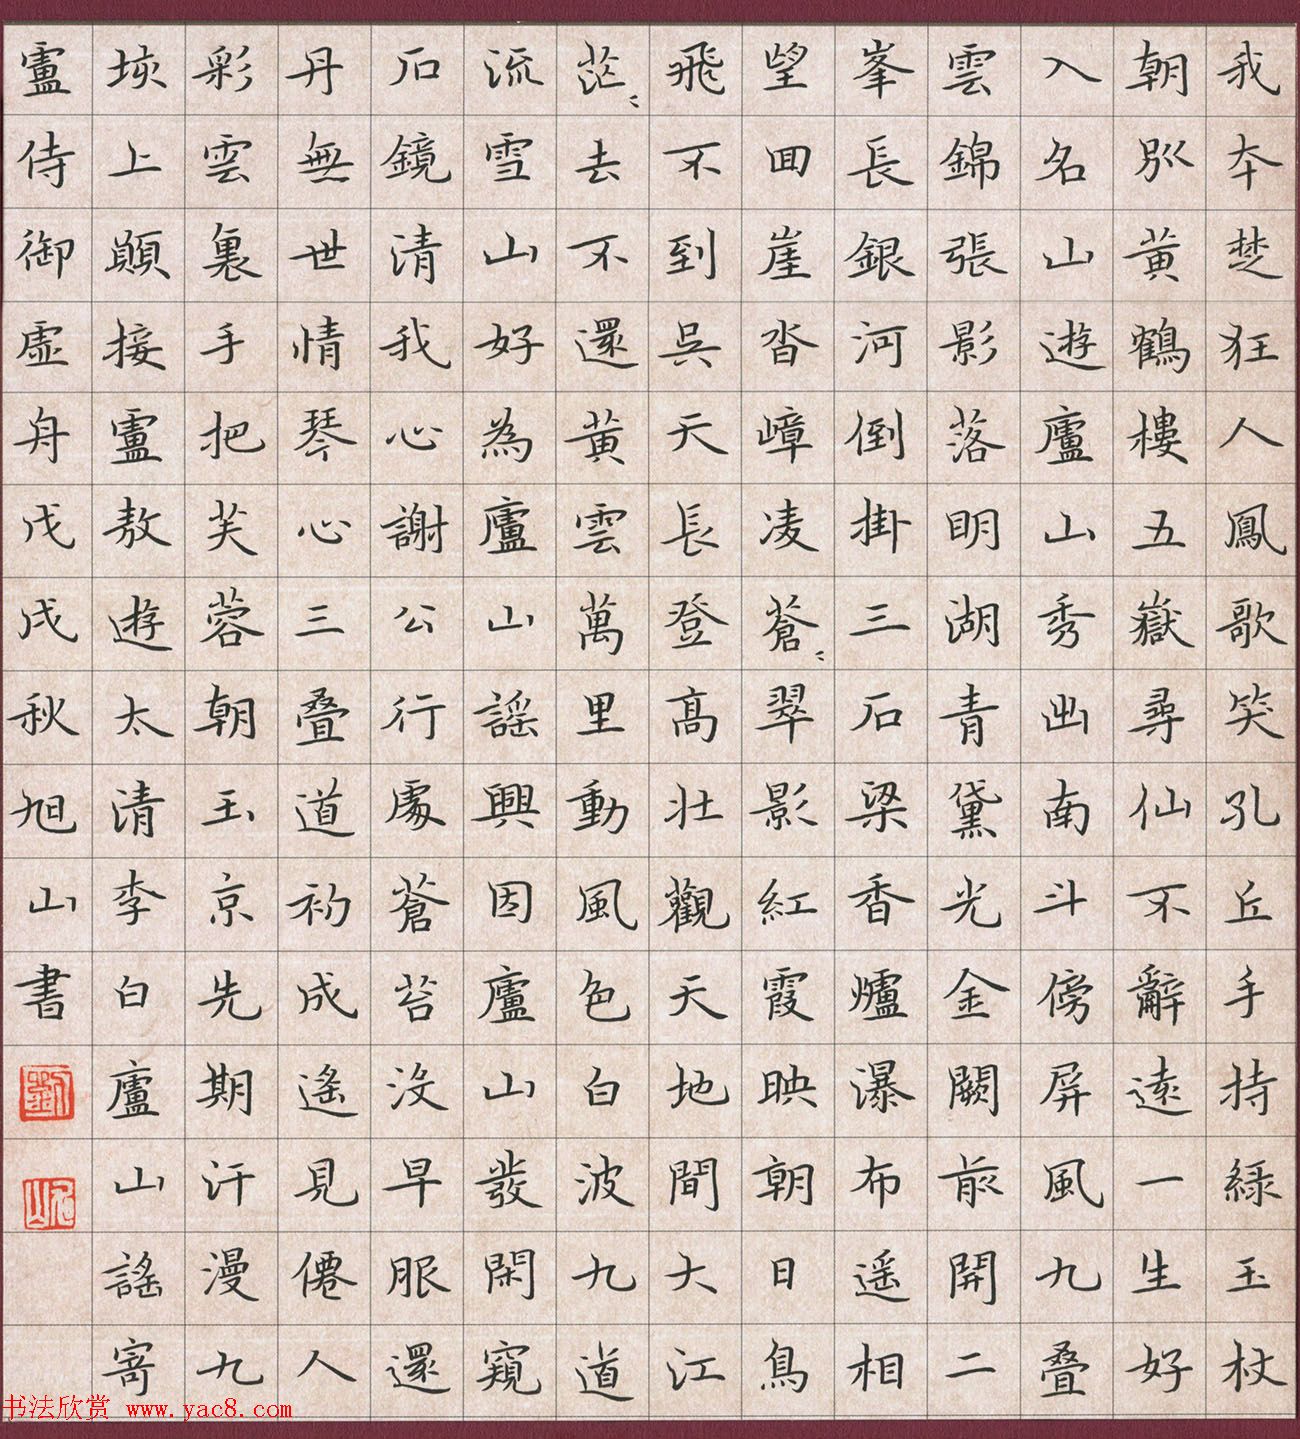 我本楚狂人鳳歌笑孔丘手持綠玉杖
朝別黃鶴樓五嶽尋仙不辭遠一生好
入名山遊廬山秀出南斗傍屏風九叠
雲錦張影落明湖青黛光金闕前開二
峯長銀河倒掛三石梁香爐瀑布遥相
望回崖沓嶂凌蒼〻翠影紅霞映朝日鳥
飛不到吳天長登高壯觀天地間大江
茫〻去不還黃雲萬里動風色白波九道
流雪山好為廬山謠興因廬山發閑窺
石鏡清我心謝公行處蒼苔沒早服還
丹無世情琴心三叠道初成遙見僊人
彩雲裏手把芙蓉朝玉京先期汗漫九
垓上願接盧敖遊太清李白廬山謠寄
盧侍御虛舟戊戌秋旭山書
劉
旭山
书法欣赏 www.yac8.com